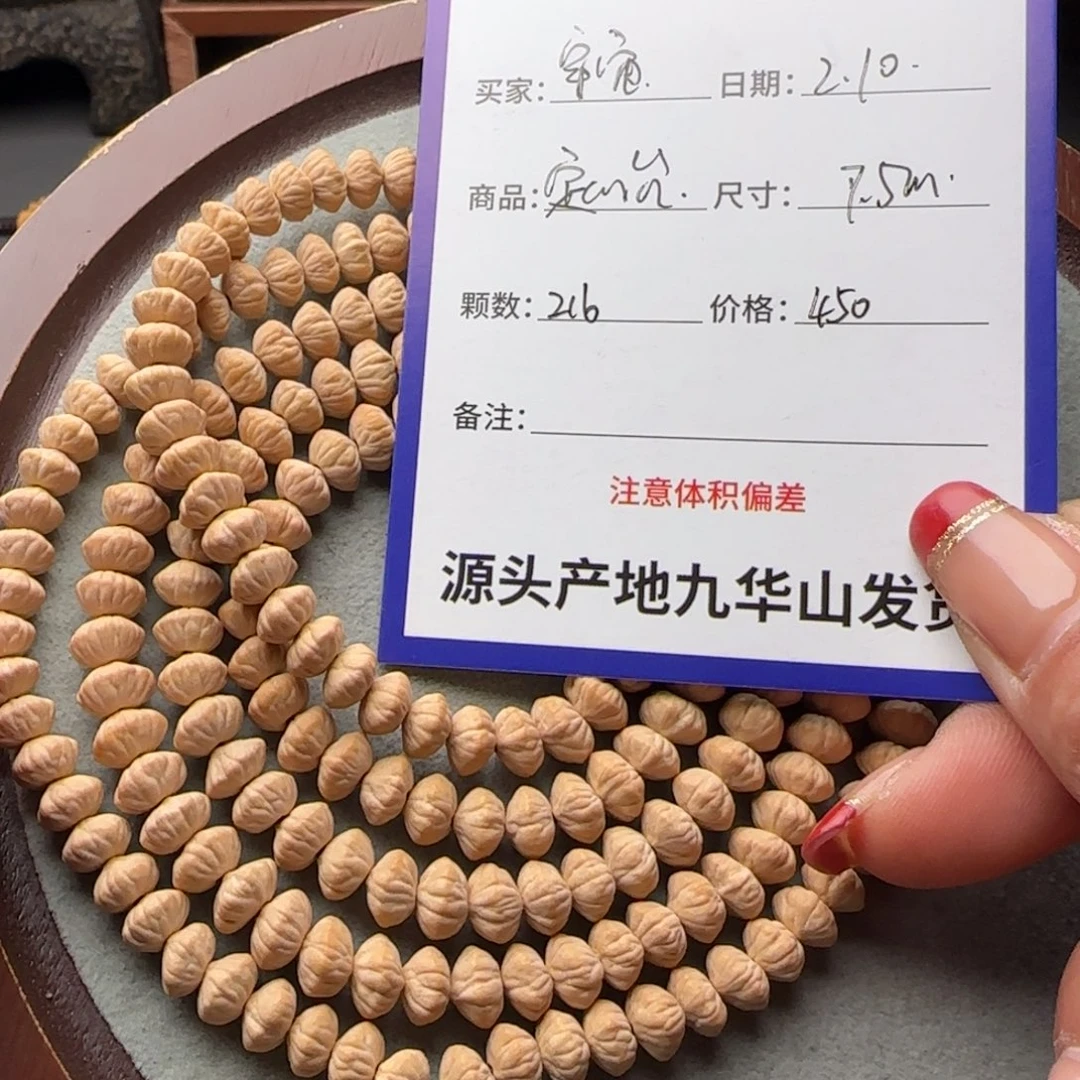 买家: 日期: 2.10.
商品: 尺寸: 7.5m.
颗数: 216 价格: 450
备注:
注意体积偏差
源头产地九华山发货